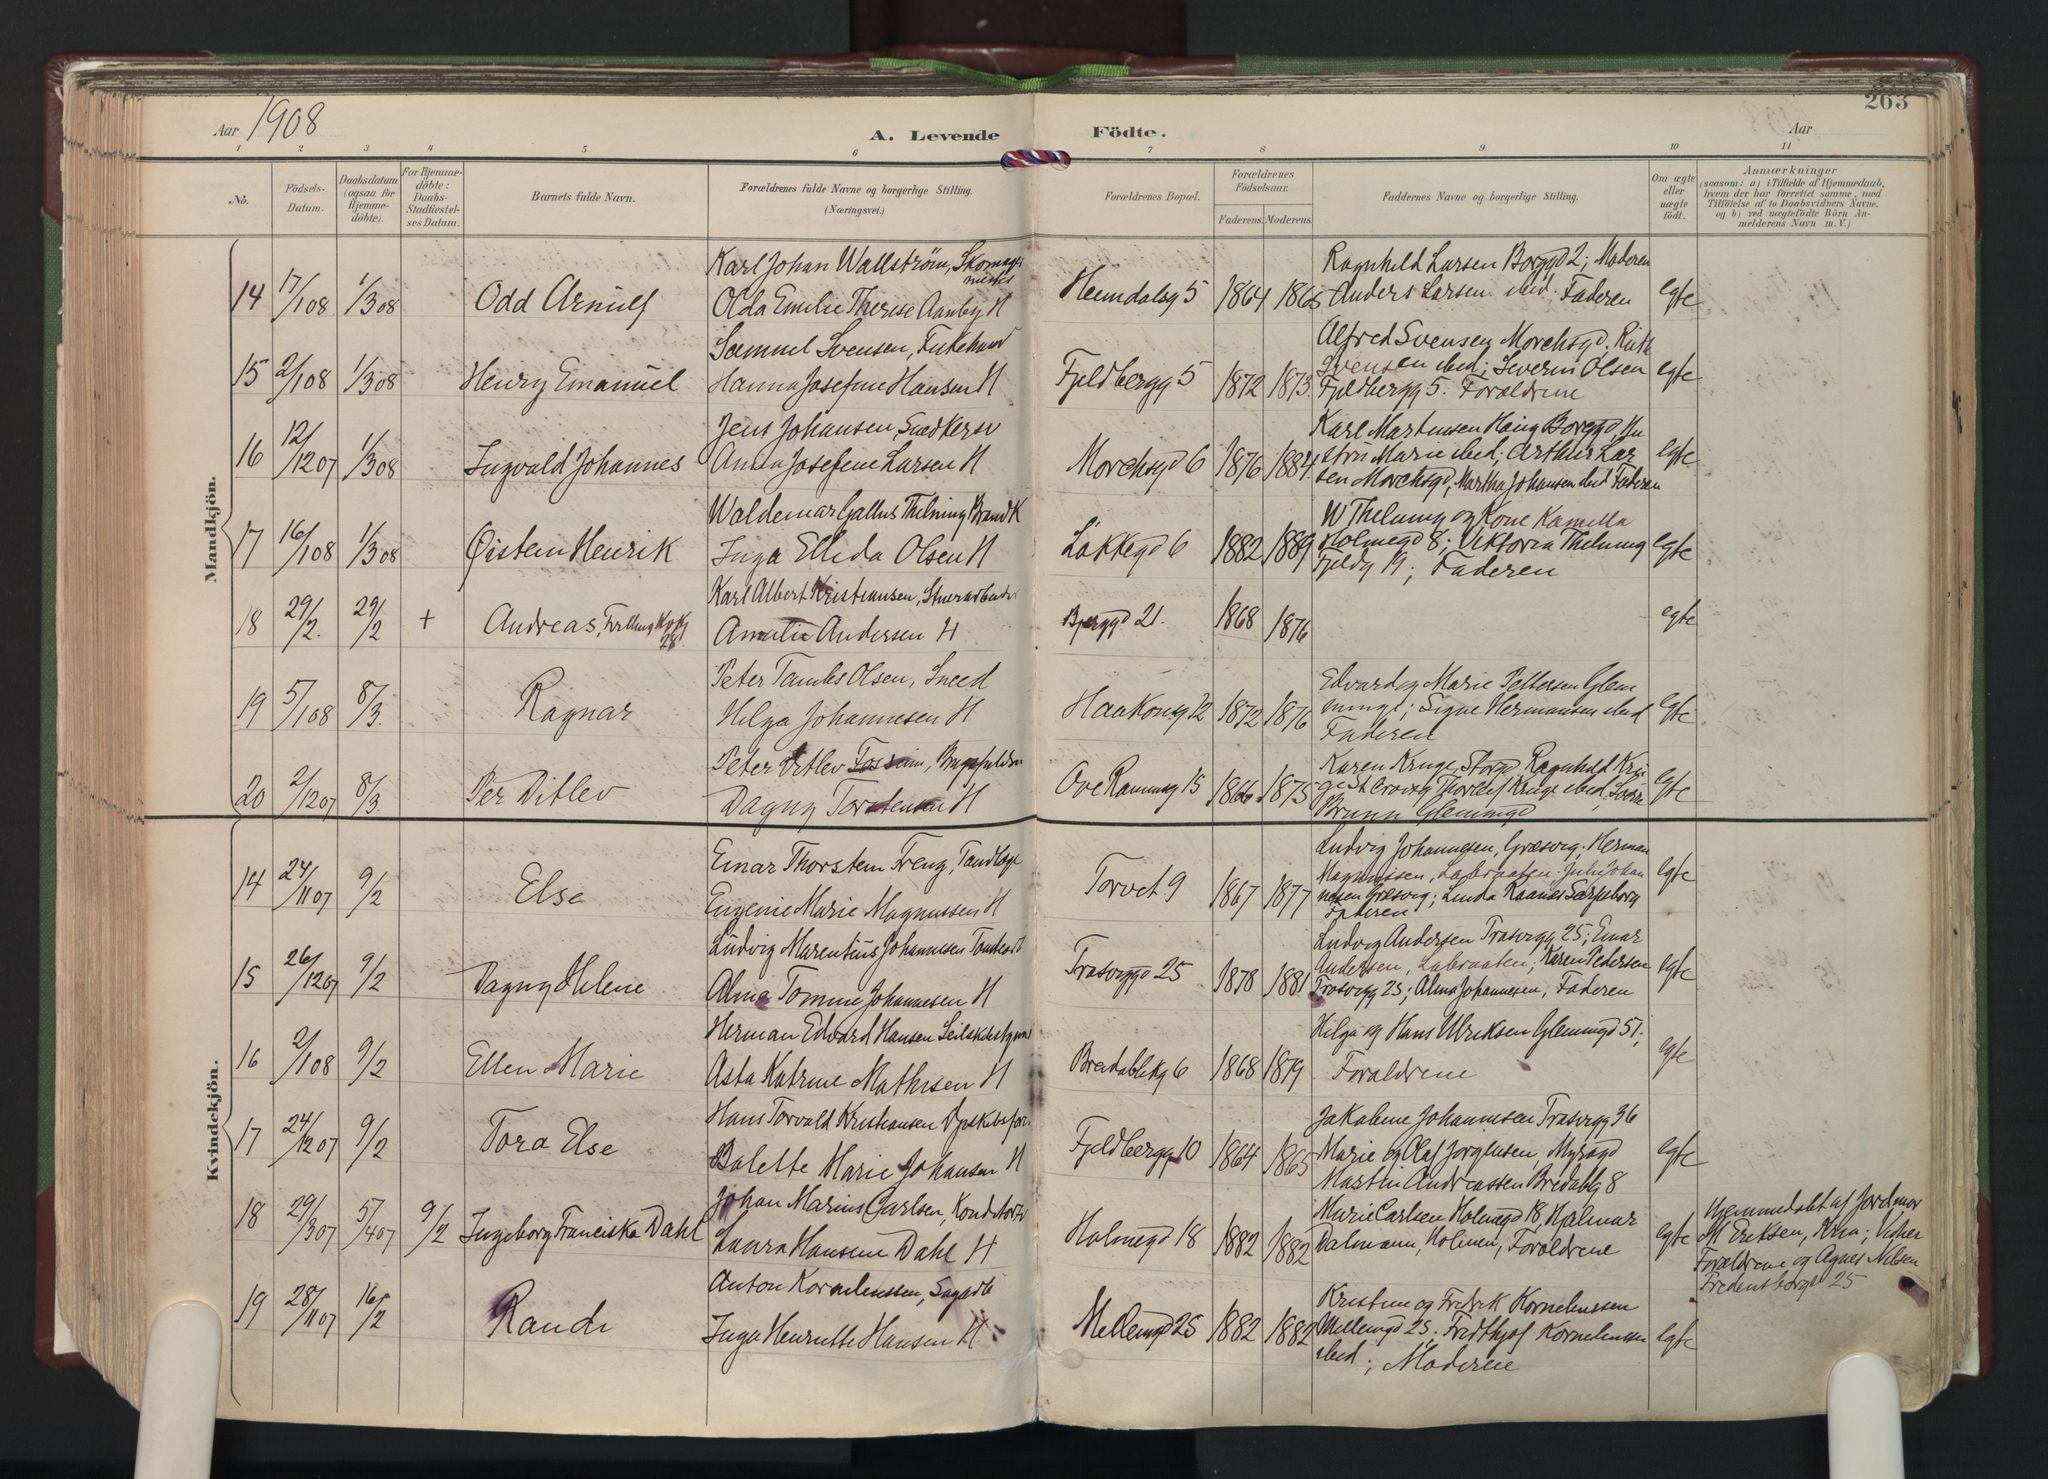 263
Aar 1908
A. Levende Födte.
Aar
1 2 3 4 5 6 7 8 9 10 11
No.
Födsels-Datum.
Daabsdatum (ogsaa for Hjemmedöbte).
For Hjemmedöbte: Daabs-Stadfæstelses Datum.
Barnets fulde Navn.
Forældrenes fulde Navne og borgerlige Stilling. (Næringsvei.)
Forældrenes Bopæl.
Forældrenes Födselsaar.
Faderens. Moderens.
Faddernes Navne og borgerlige Stilling.
Om ægte eller uægte födt.
Anmærkninger
(saasom: a) i Tilfælde af Hjemmedaab, hvem der har forrettet samme, med Tilföielse af to Daabsvidners Navne, og b) ved uægtefödte Börn Anmelderens Navn m. V.)
Mandkjön.
14 17/1 08 1/3 08 Odd Arnulf
Karl Johan Wallström, Skomager mester
Olda Emilie Therese Aanby H
Heimdalsg 5 1864 1865
Ragnhild Larsen Borggd 2; Moderen
Anders Larsen ibid. Faderen
egte
15 2/1 08 1/3 08 Henry Emanuel
Samuel Svensen,
Hanna Josefine Hansen H
Fjeldbergg 5 1872 1873
Alfred Svensen Morchsgd, Ruth
Svensen ibid; Severin Olsen
Fjeldbergg 5. Forældrene
egte
16 12/12 07 1/3 08 Ingvald Johannes
Jens Johansen, Snedkersv
Anna Josefine Larsen H
Morchsgd 6 1876 1884
Karl Martinsen Haug Borggd Hu
stru Marie ibid; Arthur Lar
sen Morchsgd, Martha Johansen ibid Faderen
egte
17 16/1 08 1/3 08 Øistein Henrik
Waldemar Gallus Thelning Brandk
Inga Elida Olsen H
Løkkegd 6 1882 1889
W Thelning og Kone Kamilla
Holmegd 8; Viktoria Thelning
Fjeldg 19; Faderen
egte
18 29/2. 29/2 + Andreas,
28
Karl Albert Kristiansen,
Amalie Andersen H
Bjerggd 21. 1868 1876
egte
19 5/1 08 8/3. Ragnar
Peter Tambs Olsen, Sned
Helga Johannesen H
Haakonsg 12 1872 1876
Edvard og Marie Pettersen Glem
mingt; Signe Hermansen ibid
Faderen
egte
20 2/12 07 8/3. Per Ditlev
Peter Ditlev
Dagny Torstensen H
Ove Rammsg 15 1866 1875
Karen Kruge, Storgd Ragnhild Kru
ge St Croixg Thorleif Kruge ibid,
Brunn Glemmgd
egte
Kvindekjön.
14 24/11 07 9/2 Else
Einar Thorstein Freng, Tandlæge
Eugenie Marie Magnussen H
Torvet 9 1867 1877
Ludvig Johannesen, Græsvig, Herman
Magnussen, Labraaten; Julie Johan
nesen Græsvig; Linda Raanes Sarpsborg
Faderen
egte
15 26/12 07 9/2 Dagny Helene
Ludvig Marentius Johannesen
Alma Tomine Johannesen H
Trosviggd 25 1878 1881
Ludvig Andersen Trosvigg 25; Einar
Andersen, Labraaten; Karen Pedersen
Trosvigg 25; Alma Johannesen, Faderen
egte
16 2/1 08 9/2 Ellen Marie
Herman Edvard Hansen
Asta Katrine Mathisen H
Breidablikg 6 1868 1879
Helga og Hans Ulriksen Glemmgd 51;
Forældrene
egte
17 24/12 07 9/2 Tora Else
Hans Torvald Kristiansen
Bolette Marie Johansen H
Fjeldbergg 10 1864 1865
Jakobine Johannesen Trosvigg 36
Marie og Olaf Jorgensen, Myragd
Martin Andreassen Bredablg 8
egte
18 29/3 07 5/4 07 9/2 Ingeborg Franciska Dahl
Johan Marius Carlsen, Konditorsv
Laura Hansine Dahl H
Holmegd 18 1882 1882
Marie Carlsen Holmegd 18, Hjalmar
Dalmann, Holmen, Forældrene
egte
Hjemmedøbt af Jordmor
M Eriksen, Kra; Vidner
Forældrene og Agnes Nilsen
Fredensborgv 25
19 28/11 07 16/2 Randi
Anton Kornelinssen, Sagarb
Inga Henriette Hansen H
Mellemgd 25 1882 1882
Kristine og Fredrik Korneliussen
Mellemgd 25; Fridthjof Korneliussen
ibid; Moderene
egte